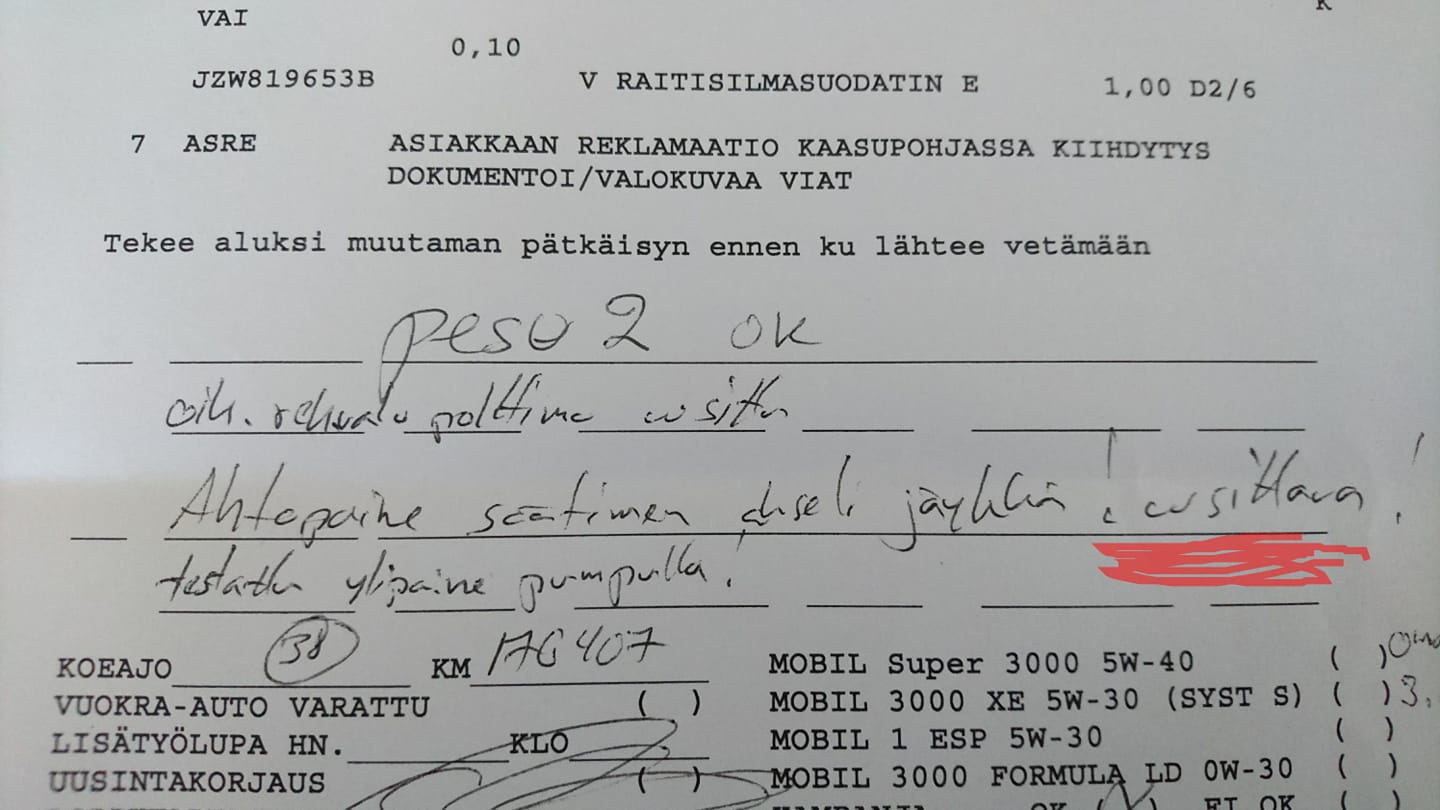 VAI K
0,10
JZW819653B V RAITISILMASUODATIN E 1,00 D2/6
7 ASRE ASIAKKAAN REKLAMAATIO KAASUPOHJASSA KIIHDYTYS
DOKUMENTOI/VALOKUVAA VIAT
Tekee aluksi muutaman pätkäisyn ennen ku lähtee vetämään
peso 2 ok
oik. rekvalo polttimo uusittu
Ahtopaine säätimen akseli jäykkä! uusittava!
testattu ylipaine pumpulla!
KOEAJO 38 KM 176407 MOBIL Super 3000 5W-40 ( )
VUOKRA-AUTO VARATTU ( ) MOBIL 3000 XE 5W-30 (SYST S) ( ) 3,
LISÄTYÖLUPA HN. KLO MOBIL 1 ESP 5W-30 ( )
UUSINTAKORJAUS ( ) MOBIL 3000 FORMULA LD 0W-30 ( )
OK ( ) EI OK ( )